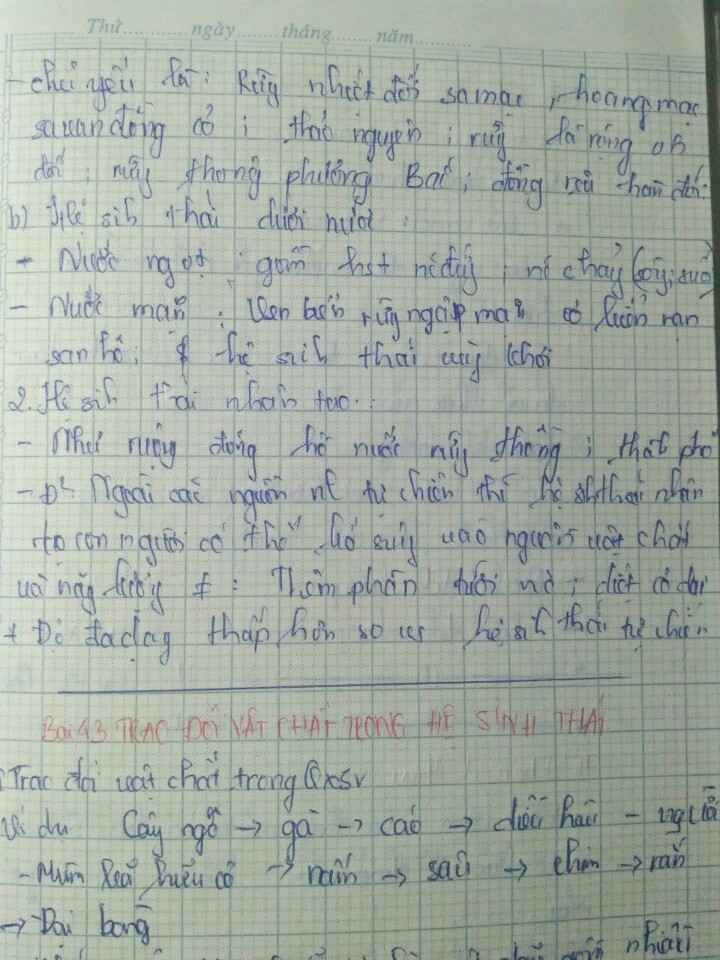 Thứ............ngày...........tháng..........năm............
- chủ yếu là : Rừng nhiệt đới sa mạc , hoang mạc
savan đồng cỏ ; thảo nguyên ; rừng lá rộng ôn
đới ; rừng thông phương Bắc ; đồng rêu hàn đới.
b) Hệ sinh thái dưới nước :
- Nước ngọt : gồm hst nc đứng ; nc chảy (sông, suối)
- Nước mặn : Ven biển , rừng ngập mặn cỏ biển rạn
san hô ; hệ sinh thái vùng khơi
2. Hệ sinh thái nhân tạo :
- Như ruộng đồng hồ nước rừng thông ; thành phố
- Đ² Ngoài các nguồn nl tự nhiên thì hệ sinh thái nhân
tạo con người có thể bổ sung vào nguồn vật chất
và năng lượng ≠ : Thêm phân tưới nc ; diệt cỏ dại
+ Độ đa dạng thấp hơn so với hệ sinh thái tự nhiên
Bài 43 TRAO ĐỔI VẬT CHẤT TRONG HỆ SINH THÁI
Trao đổi vật chất trong QxSV
Ví dụ Cây ngô → gà → cáo → diều hâu
- Mùn bã hữu cơ → nấm → sâu → chim → rắn
→ Đại bàng